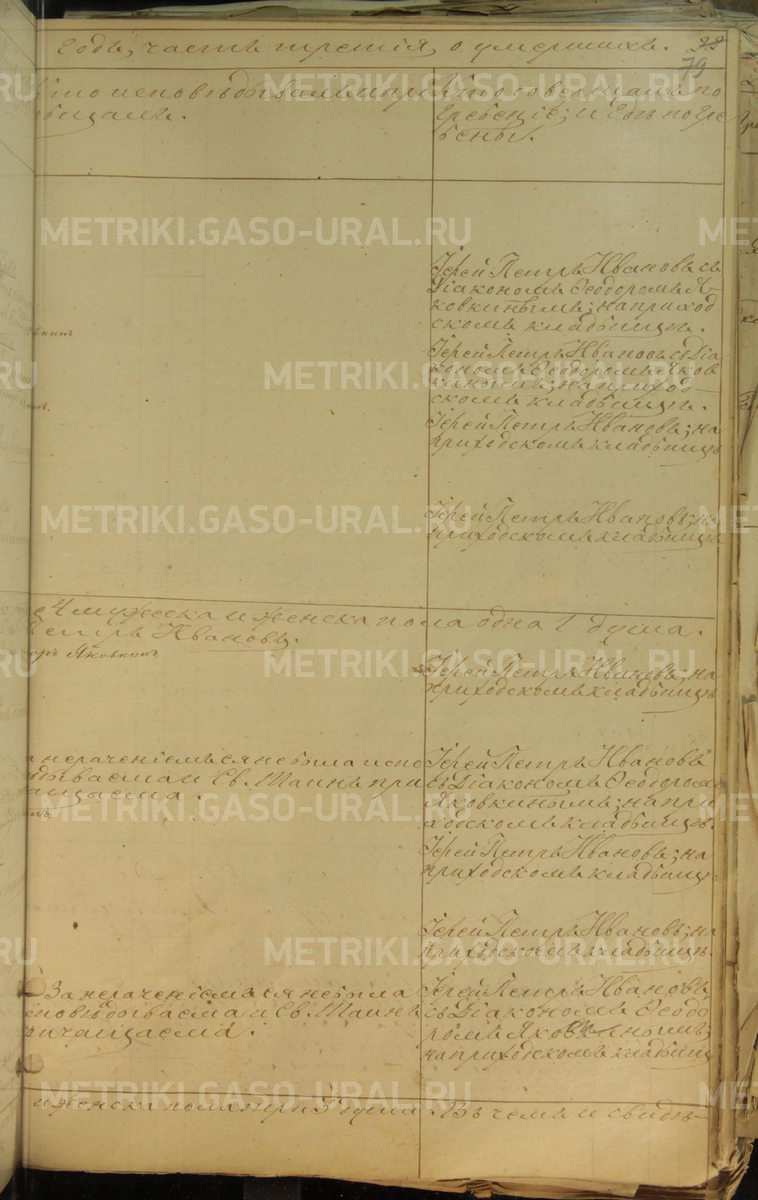 Годъ, часть третія, о умершихъ. 38
79
Кто исповѣдывалъ и прі
общалъ.
Кто совершалъ по
гребеніе; и гдѣ погре
бены.
Іерей Петръ Ивановъ съ
Діакономъ Ѳеодоромъ Я-
ковкинымъ; на приход
скомъ кладбищѣ.
Іерей Петръ Ивановъ съ Діа
кономъ Ѳеодоромъ Яков
кинымъ; на приход
скомъ кладбищѣ.
Іерей Петръ Ивановъ; на
приходскомъ кладбищѣ
Іерей Петръ Ивановъ; на
приходскомъ кладбищѣ
4 мужеска и женска пола одна 1 душа.
Петръ Ивановъ.
Яковкинъ
Іерей Петръ Ивановъ; на
приходскомъ кладбищѣ
нераченіемъ ея не была испо
вѣдываема и Св. Таинъ прі
общаема.
Іерей Петръ Ивановъ
съ Діакономъ Ѳеодоромъ
Яковкинымъ; на при
ходскомъ кладбищѣ.
Іерей Петръ Ивановъ; на
приходскомъ кладбищѣ
Іерей Петръ Ивановъ; на
приходскомъ кладбищѣ.
За нераченіемъ ея не была
исповѣдываема и Св. Таинъ
причащаема.
Іерей Петръ Ивановъ
съ Діакономъ Ѳеодо
ромъ Яковкинымъ;
на приходскомъ кладбищѣ
и женска пола три 3 души. Въ чемъ и свидѣ-
METRIKI.GASO-URAL.RU